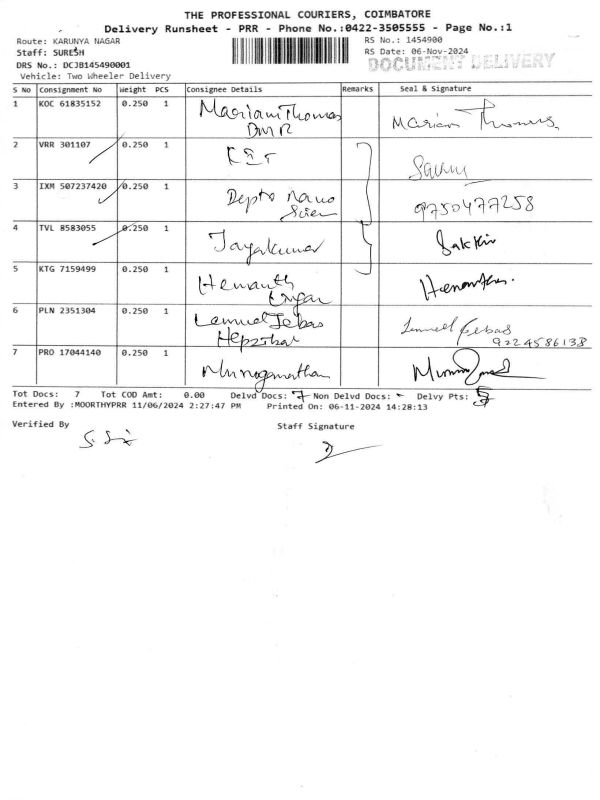 THE PROFESSIONAL COURIERS, COIMBATORE
Delivery Runsheet - PRR - Phone No.:0422-3505555 - Page No.:1
Route: KARUNYA NAGAR RS No.: 1454900
Staff: SURESH RS Date: 06-Nov-2024
DRS No.: DCJB145490001 DOCUMENT DELIVERY
Vehicle: Two Wheeler Delivery
S No Consignment No Weight PCS Consignee Details Remarks Seal & Signature
1 KOC 61835152 0.250 1 Mariam Thomas Mariam Thomas
DMR
2 VRR 301107 0.250 1
3 IXM 507237420 0.250 1 Dept Nano 9750477258
Scien
4 TVL 8583055 0.250 1 Jayakumar
5 KTG 7159499 0.250 1 Hemanth
6 PLN 2351304 0.250 1 Lemuel Jebas Lemuel Jebas
Hepzibai 9224586138
7 PRO 17044140 0.250 1 Muruganantham
Tot Docs: 7 Tot COD Amt: 0.00 Delvd Docs: 7 Non Delvd Docs: - Delvy Pts: 5
Entered By :MOORTHYPRR 11/06/2024 2:27:47 PM Printed On: 06-11-2024 14:28:13
Verified By Staff Signature